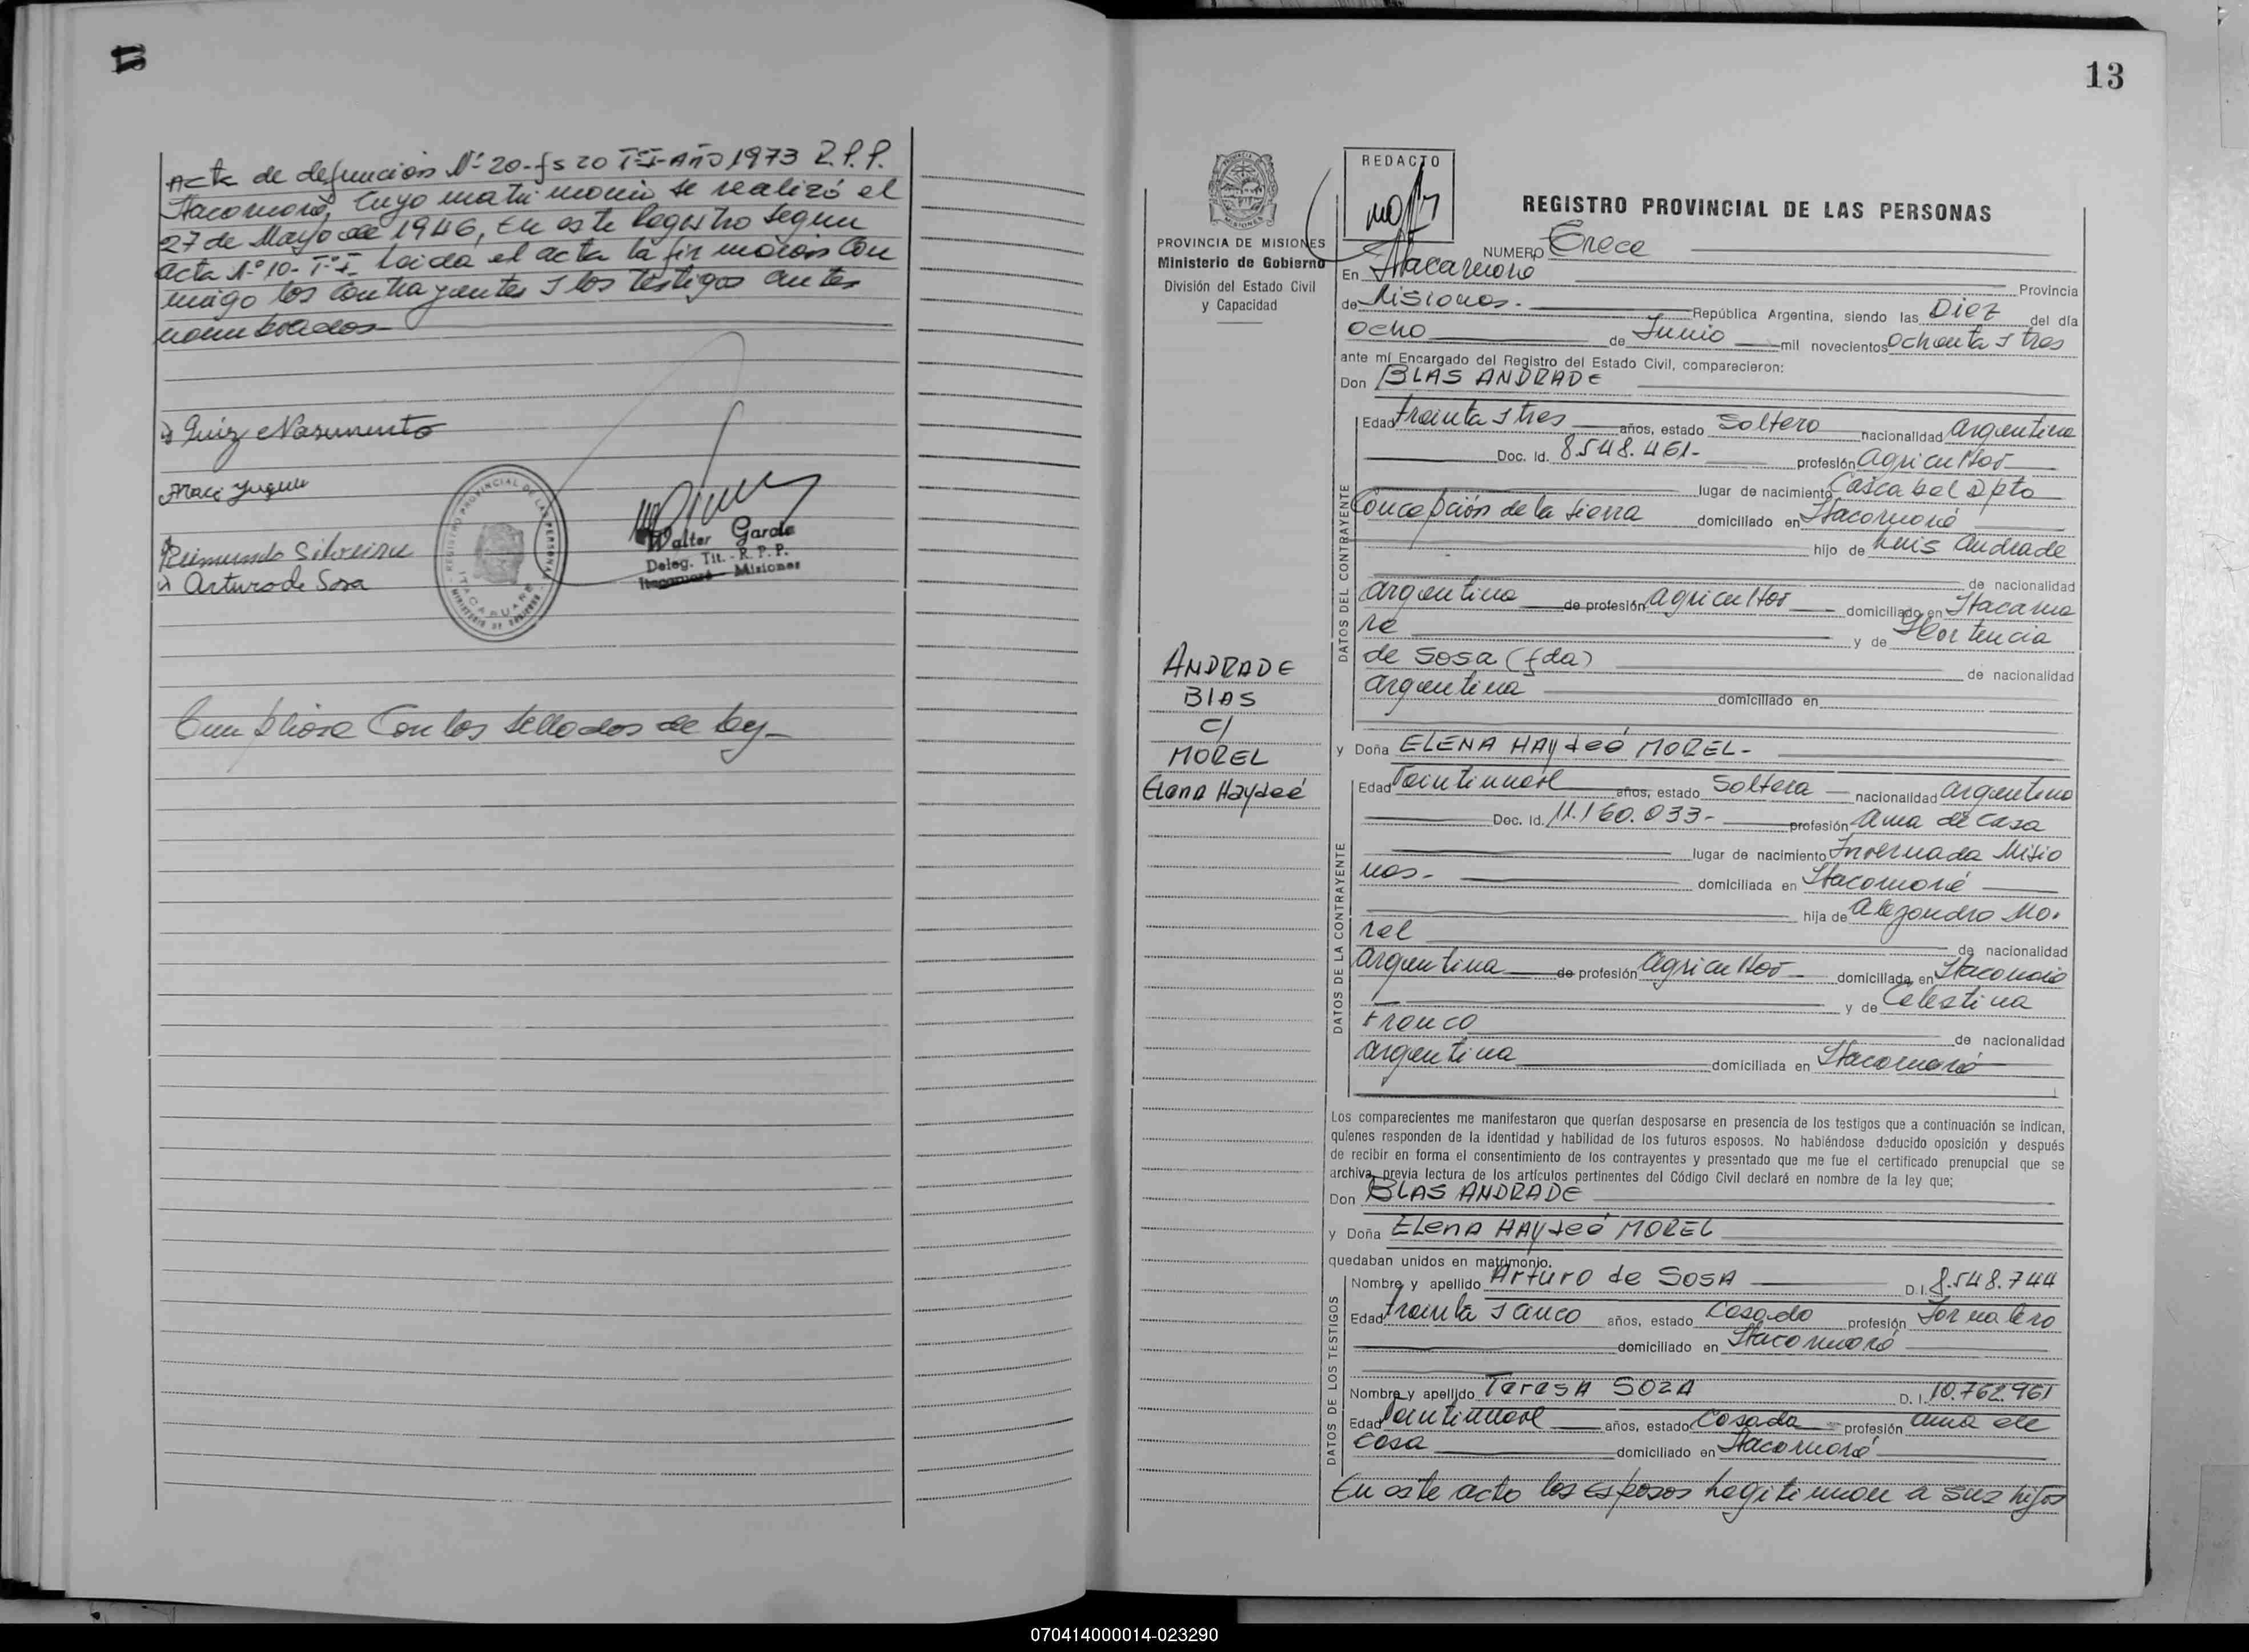 13
Acta de defunción Nº 20-fs 20 Tº I-Año 1973 R.P.P.
Itacaruaré, Cuyo matrimonio se realizó el
27 de Mayo de 1946, En este Registro Segun
acta Nº 10- Tº I. Leida el acta la firmaron Con
migo los Contrayentes y los testigos antes
nombrados
Luiz Nascimento
Reimundo Silveira
Arturo de Sosa
REGISTRO PROVINCIAL DE LAS PERSONAS
ITACARUARE
Walter Garde
Deleg. Tit. - R. P. P.
Itacaruaré - Misiones
Cumpliose Con los Sellados de Ley-
13
PROVINCIA DE MISIONES
Ministerio de Gobierno
División del Estado Civil
y Capacidad
ANDRADE
BLAS
C/
MOREL
Elena Haydeé
REDACTO
REGISTRO PROVINCIAL DE LAS PERSONAS
NUMERO Trece
En Itacaruaré
Provincia
de Misiones.- República Argentina, siendo las Diez del día
ocho de Junio mil novecientos ochenta y tres
ante mí Encargado del Registro del Estado Civil, comparecieron:
Don BLAS ANDRADE
DATOS DEL CONTRAYENTE
Edad treinta y tres años, estado Soltero nacionalidad argentina
Doc. Id. 8.548.461- profesión agricultor
lugar de nacimiento Cascabel Dpto
Concepción de la Sierra domiciliado en Itacaruaré
hijo de Luis Andrade
de nacionalidad
argentina de profesión agricultor domiciliado en Itacarua
ré y de Hortencia
de Sosa (fda) de nacionalidad
argentina domiciliado en
y Doña ELENA HAYdeé MOREL-
DATOS DE LA CONTRAYENTE
Edad Veintinueve años, estado Soltera nacionalidad argentina
Doc. Id. 11.160.033- profesión ama de casa
lugar de nacimiento Invernada Misio
nes- domiciliada en Itacaruaré
hija de Alejandro Mo-
rel de nacionalidad
argentina de profesión agricultor domiciliada en Itacaruaré
y de Celestina
Franco de nacionalidad
argentina domiciliada en Itacaruaré
Los comparecientes me manifestaron que querían desposarse en presencia de los testigos que a continuación se indican,
quienes responden de la identidad y habilidad de los futuros esposos. No habiéndose deducido oposición y después
de recibir en forma el consentimiento de los contrayentes y presentado que me fue el certificado prenupcial que se
archiva, previa lectura de los artículos pertinentes del Código Civil declaré en nombre de la ley que;
Don BLAS ANDRADE
y Doña ELENA HAYdeé MOREL
quedaban unidos en matrimonio.
DATOS DE LOS TESTIGOS
Nombre y apellido Arturo de SOSA D.I. 8.548.744
Edad treinta y cinco años, estado Casado profesión Jornalero
domiciliado en Itacaruaré
Nombre y apellido TeresA SOZA D. I. 10.762.961
Edad Veintinueve años, estado Casada profesión ama de
casa domiciliado en Itacaruaré
En este acto los esposos Legitiman a sus hijos
070414000014-023290